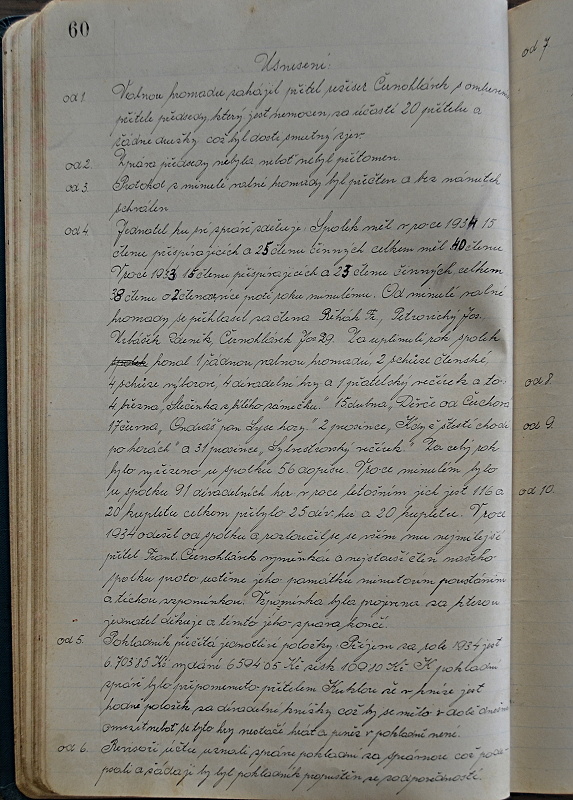 60
Usnesení:
od 1. Valnou hromadu zahájil přítel režiser Černohlávek s omluvením
přítele předsedy, který jest nemocen, za účasti 20 přítelů a
žádné družky což byl dosti smutný zjev.
od 2. Zpráva předsedy nebyla neboť nebyl přítomen.
od 3. Protokol z minulé valné hromady byl přečten a bez námitek
schválen
od 4. Jednatel ku své zprávě sděluje: Spolek měl v roce 1934 15
členů přispívajících a 25 členů činných celkem měl 40 členů
V roce 1933 15 členů přispívajících a 23 členů činných celkem
38 členů o 2 členy více proti roku minulému. Od minulé valné
hromady se přihlásel za člena Řihák Fr., Petrovický Jos.
Urbášek Zdeněk, Černohlávek Jos 29. Za uplynulý rok spolek
spolek konal 1 řádnou valnou hromadu, 2 schůze členské,
4 schůze výborové, 4 divadelní hry a 1 přátelský večírek a to:
4 března, "Slečinka z bílého zámečku." 15 dubna, "Děvče od Čuchova
17 června, "Ondráš pan Lysé hory" 2 prosince, "Když štěstí chodí
po horách" a 31 prosince, "Sylvestrovský večírek." Za celý rok
bylo vyřízeno u spolku 56 dopisů. V roce minulém bylo
u spolku 91 divadelních her v roce letošním jich jest 116 a
20 kupletů celkem přibylo 25 div. her a 20 kupletů. V roce
1934 odešel od spolku a rozloučil se se všem mu nejmilejší
přítel Frant. Černohlávek výměnkář a nejstarší člen našeho
spolku proto uctěme jeho památku minutovým povstáním
a tichou vzpomínkou. Vzpomínka byla projevena za kterou
jednatel děkuje a tímto jeho zpráva končí.
od 5. Pokladník přečítá jednotlivé položky. Příjem za rok 1934 jest
6.703 85 Kč vydání 6594 05 Kč zisk 109 80 Kč K pokladní
zprávě bylo připomenuto přítelem Kuklou že v knize jest
hodně položek za divadelní knížky což by se mělo v době dnešní
omezit neboť se tyto hry nestačí hrát a peněz v pokladně není.
od 6. Revisoři účtů uznali zprávu pokladní za správnou což pode-
psali a žádají by byl pokladník propuštěn ze zodpovědnosti.
od 7
od 8.
od 9.
od 10.